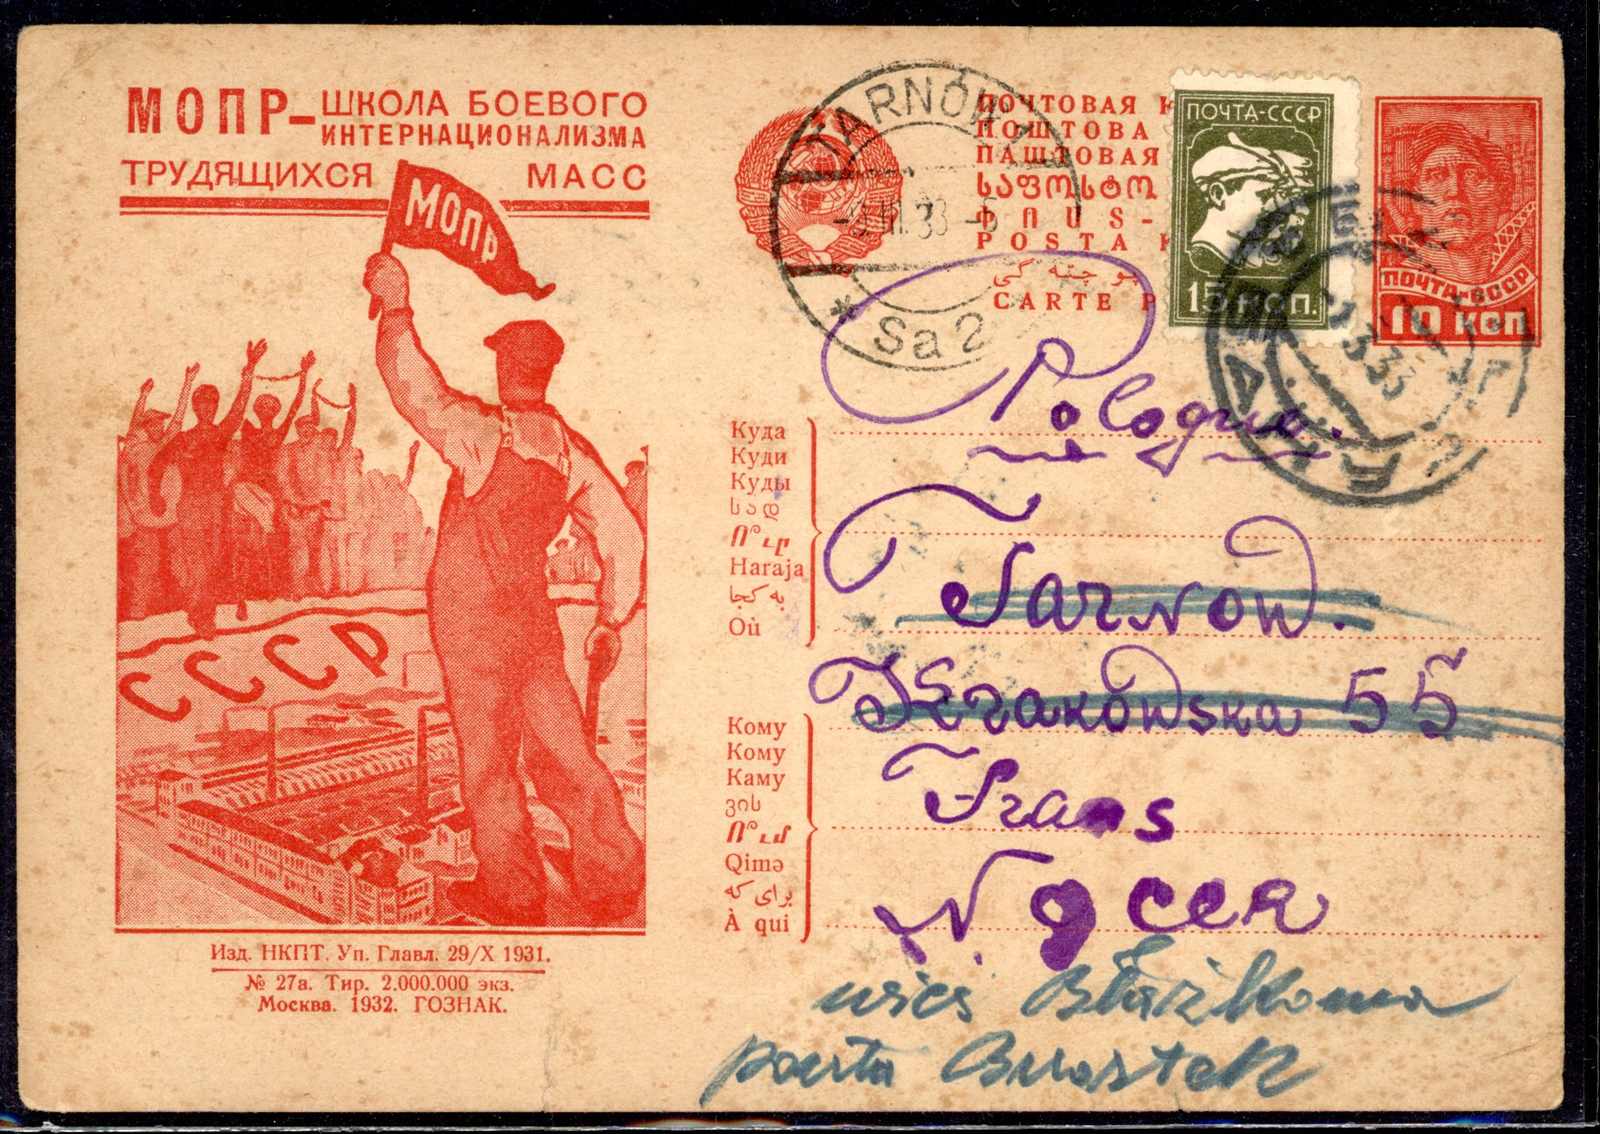 МОПР – ШКОЛА БОЕВОГО
ИНТЕРНАЦИОНАЛИЗМА
ТРУДЯЩИХСЯ МАСС
МОПР
СССР
Изд. НКПТ. Уп. Главл. 29/X 1931.
№ 27а. Тир. 2.000.000 экз.
Москва. 1932. ГОЗНАК.
TARNÓW
33
* Sa 2
ПОЧТОВАЯ
ПОШТОВА
ПАШТОВАЯ
ᲡᲐᲤᲝᲡᲢᲝ
ՓՈՍ-
POSTA
CARTE P
ПОЧТА-СССР
15 КОП.
ПОЧТА-СССР
10 КОП
Куда
Куди
Куды
სად
Ո՞ւր
Haraja
به کجا
Où
Кому
Кому
Каму
ვის
Ո՞ւմ
Qimə
برای که
À qui
Pologne.
Tarnow.
Krakowska 55
Frans
wieś Błażkowa
poczta Brostek